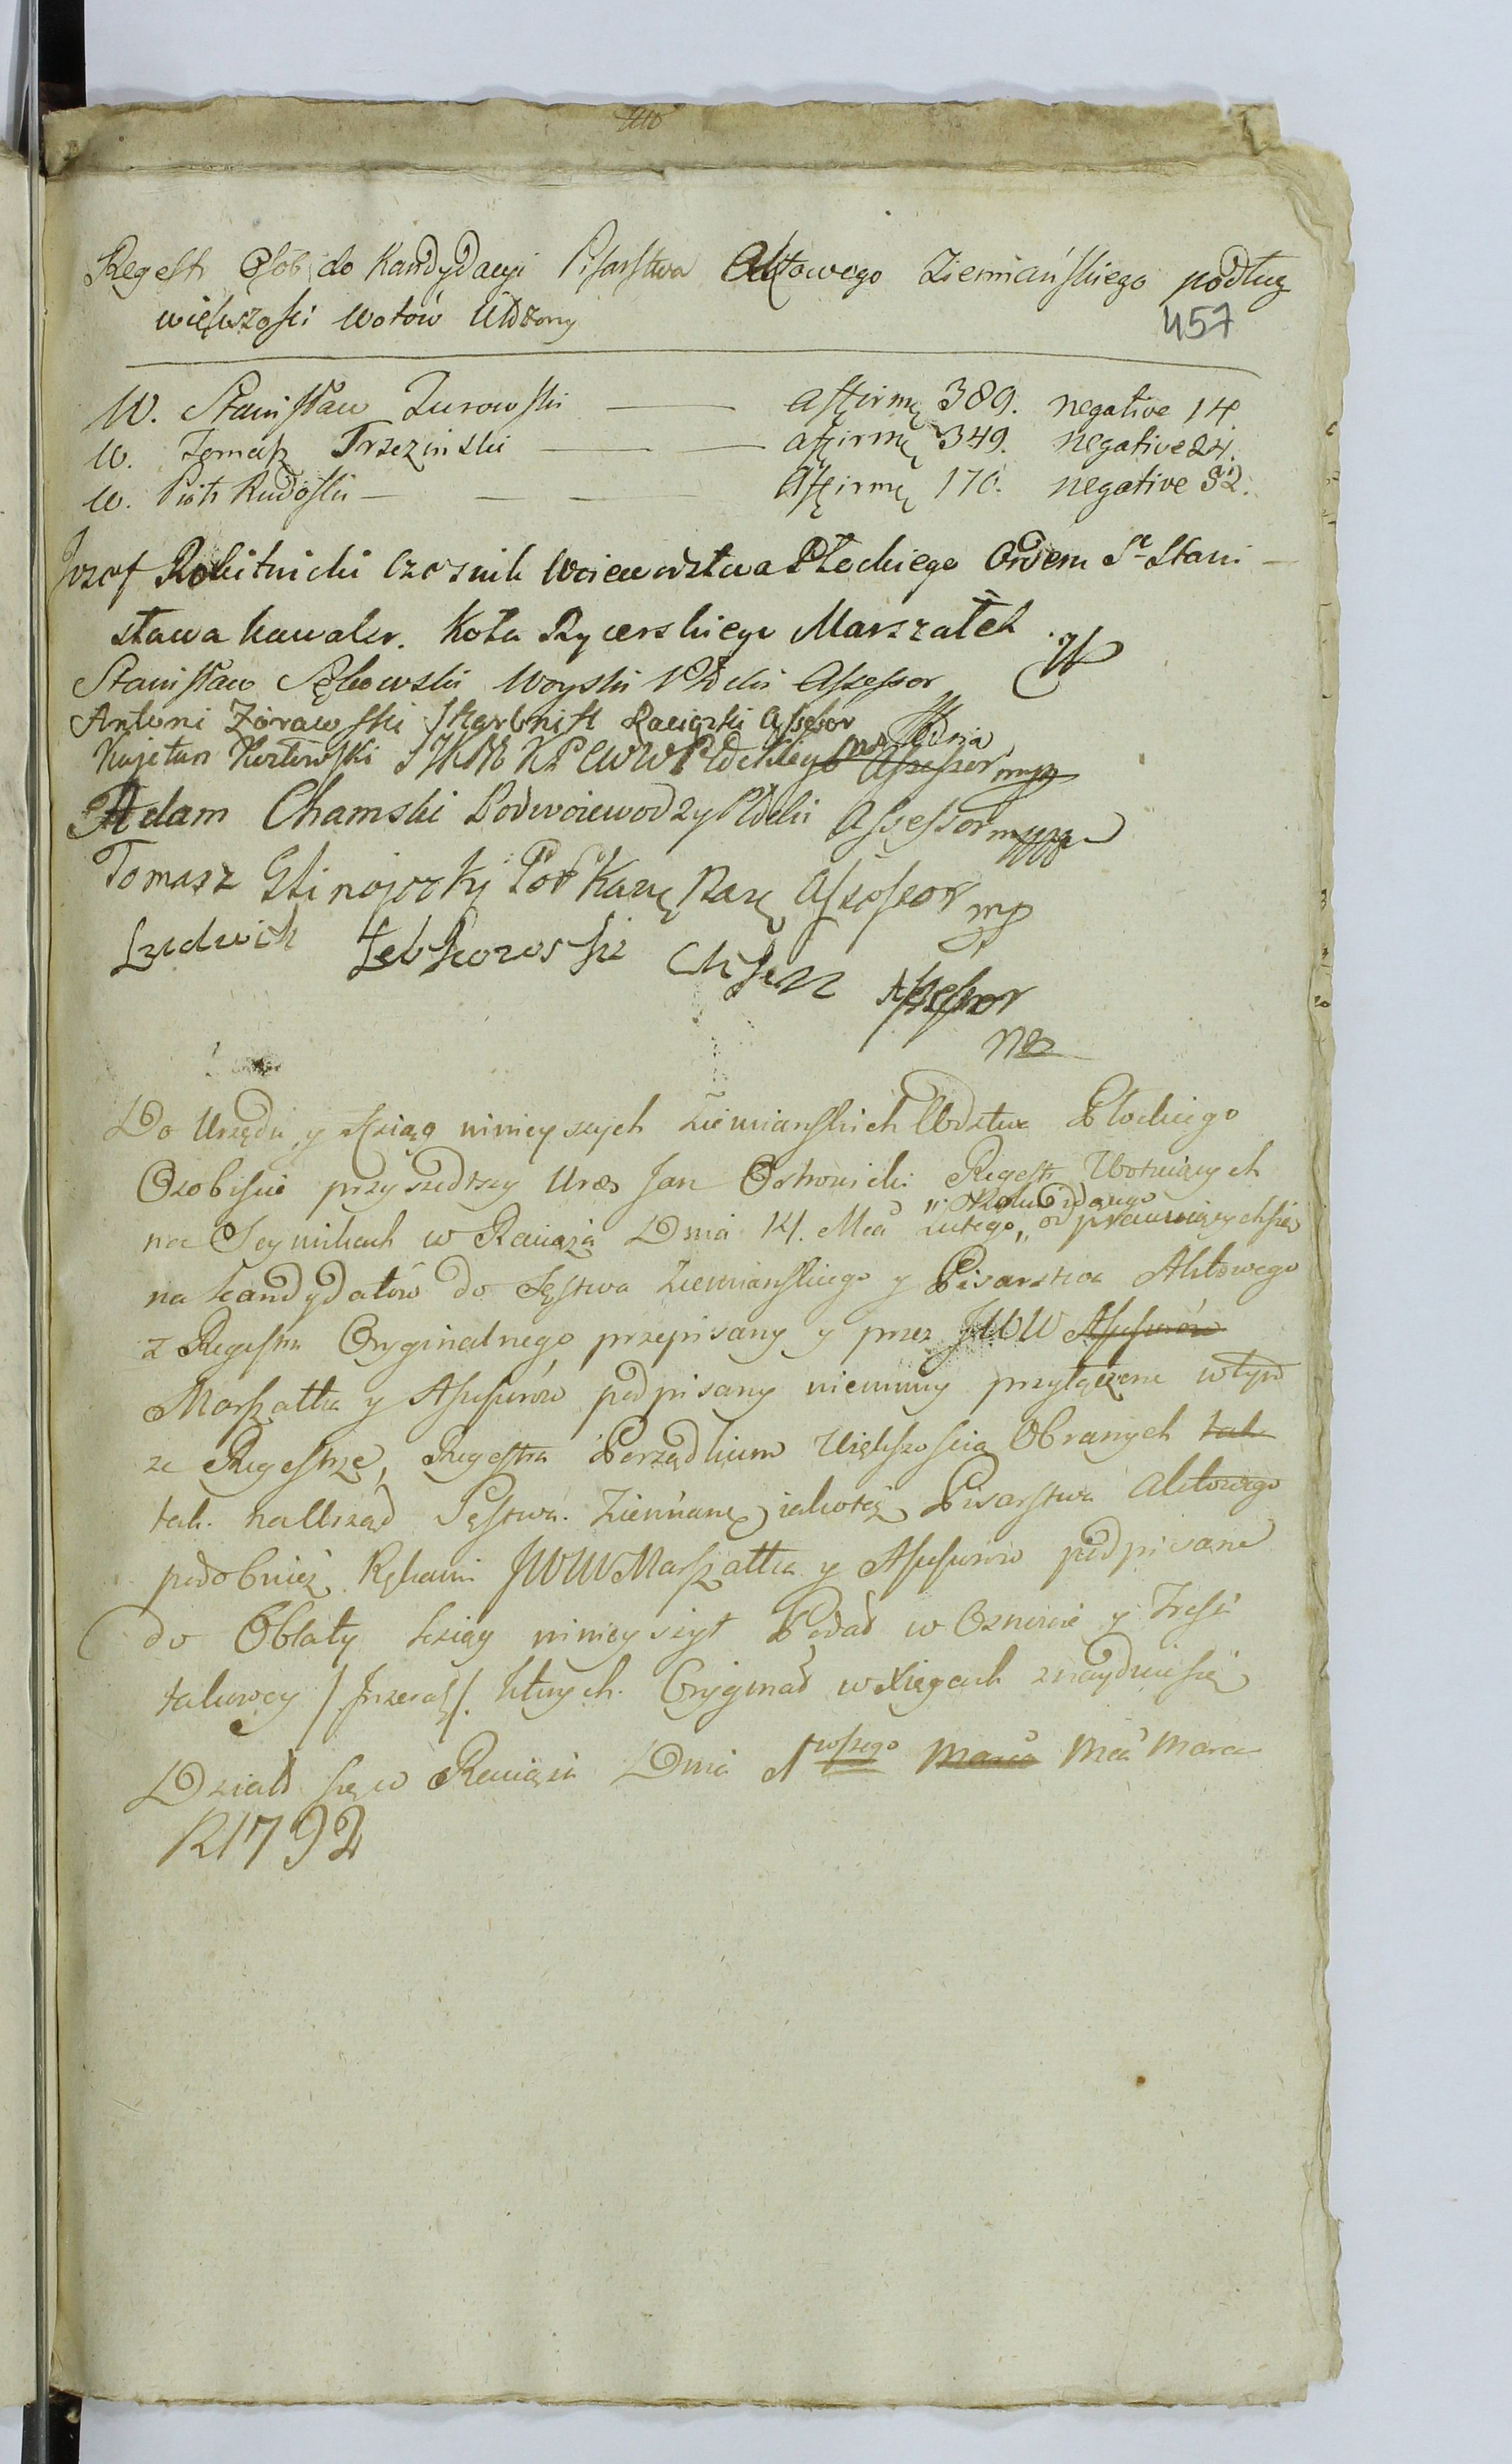 Regestr Osób do Kandydacyi Pisarstwa Aktowego Ziemiańskiego podług
większości Wotów Ułożony
457
W. Stanisław Zurowski — affirmę 389. negative 14
W. Tomasz Trzcziński — — affirmę 349. negative 24.
W. Piotr Rudoski — — — Affirmę 170. negative 32.
Jozef Rokitnicki Czesnik Woiewodztwa Płockiego Orderu S° Stani-
sława Kawaler. Koła Rycerskiego Marszałek
Stanisław Woyski Płcki Assessor
Antoni Zórawski Skarbnik Raciązki Assesor
Kajetan Kozłowski Płockiego Assessor mpp
Adam Chamski Podwoiewodzy Płcki Assessor mppa
Tomasz Glinojecky Assessor mp
Ludwik Assessor
Do Urzędu y Xsiąg ninieyszych Ziemianskich Wdztwa Płockiego
Osobiscie przyszedłszy Uro. Jan Ostrowicki Regestr Wotuiących
na Seymikach w Raciążu Dnia 14. Mca Lutego,, od
na Kandydatów do Sęstwa Ziemianskiego y Pisarstwa Aktowego
z Regestru Oryginalnego przepisany y przez JWW Assessorów
Marszałka y Assessorów podpisany niemniey przyłączone w tym
ze Regestrze, Regestra Porządkiem Większoscią Obranych tak
tak. na Urząd Sęstwa. Ziemianę iakoteż Pisarstwa Aktowego
podobnież Rękami JWW Marszałka y Assessorów podpisane
do Oblaty Xsiąg ninieyszyt Podał w Osnowie y Tresci
takowey /Inserat/. Których. Oryginał w Xięgach znayduie się
Działo się w Raciążu Dnia 1 wszego Marca Mca Marca
R 1792